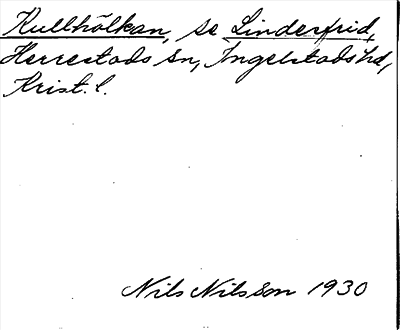 Kullhölkan, se Linderfrid,
Herrestads sn, Ingelstads hd,
Krist. l.
Nils Nilsson 1930